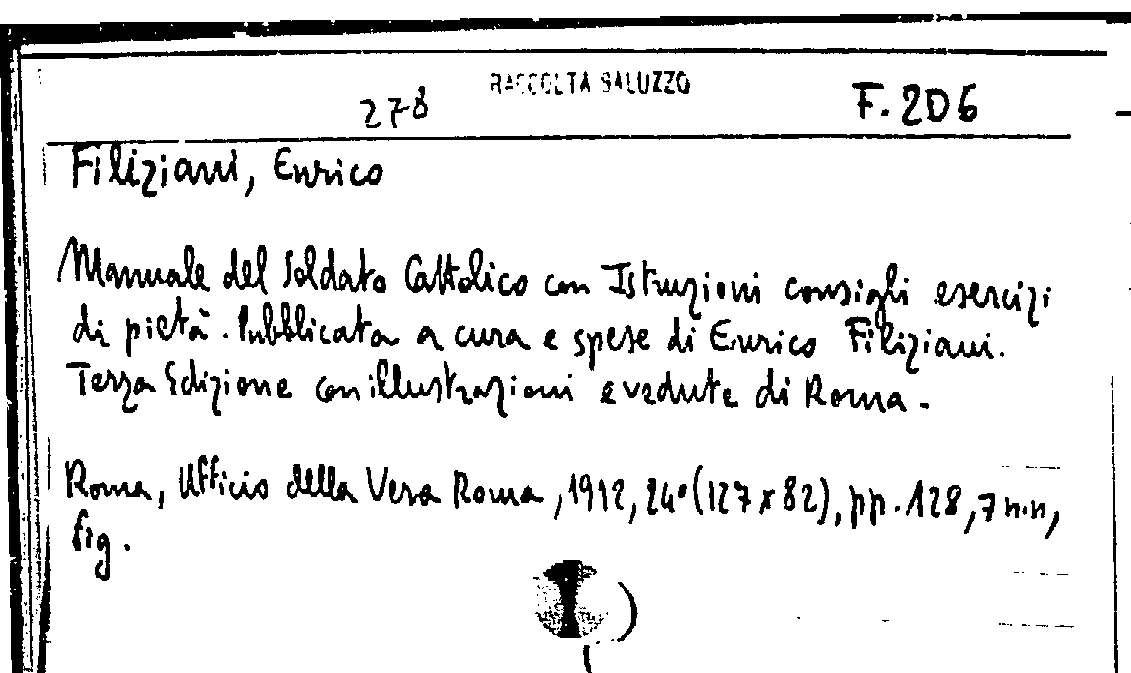 RACCOLTA SALUZZO
278 F. 206
Filiziani, Enrico
Manuale del Soldato Cattolico con Istruzioni consigli esercizi
di pietà. Pubblicata a cura e spese di Enrico Filiziani.
Terza Edizione con illustrazioni e vedute di Roma.
Roma, Ufficio della Vera Roma, 1912, 24° (127 x 82), pp. 128, 7 n.n,
fig.